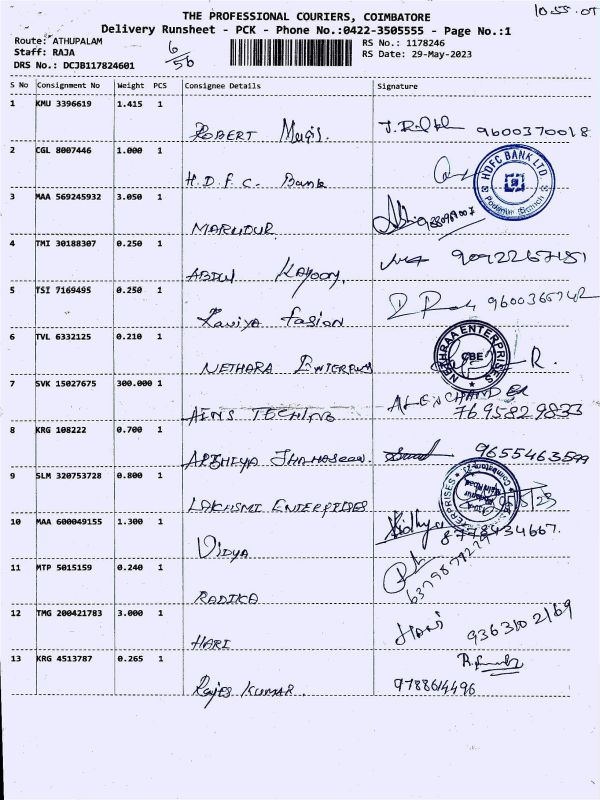 THE PROFESSIONAL COURIERS, COIMBATORE
10.55.05
Delivery Runsheet - PCK - Phone No.:0422-3505555 - Page No.:1
Route: ATHUPALAM
6/56
RS No.: 1178246
Staff: RAJA
RS Date: 29-May-2023
DRS No.: DCJB117824601
S No Consignment No Weight PCS Consignee Details Signature
1 KMU 3396619 1.415 1
ROBERT 9600370018
2 CGL 8007446 1.000 1
H.D.F.C. Bank
HDFC BANK LTD
3 MAA 569245932 3.050 1
MARUDUR
4 TMI 30188307 0.250 1
ABDUL KAYOOM 9092267181
5 TSI 7169495 0.250 1
Kaviya fasion
6 TVL 6332125 0.210 1
NETHARA
ENTERPRISES
CBE
R.
7 SVK 15027675 300.000 1
ALENCHANDER
7695829833
8 KRG 108222 0.700 1
9655463599
9 SLM 320753728 0.800 1
LAKHSMI ENTERPRISES
10 MAA 600049155 1.300 1
VIDYA Vidhya
8778434667.
11 MTP 5015159 0.240 1
RADIKA
12 TMG 200421783 3.000 1
HARI Hari 9363102169
13 KRG 4513787 0.265 1
Rajes Kumar. 9788614496